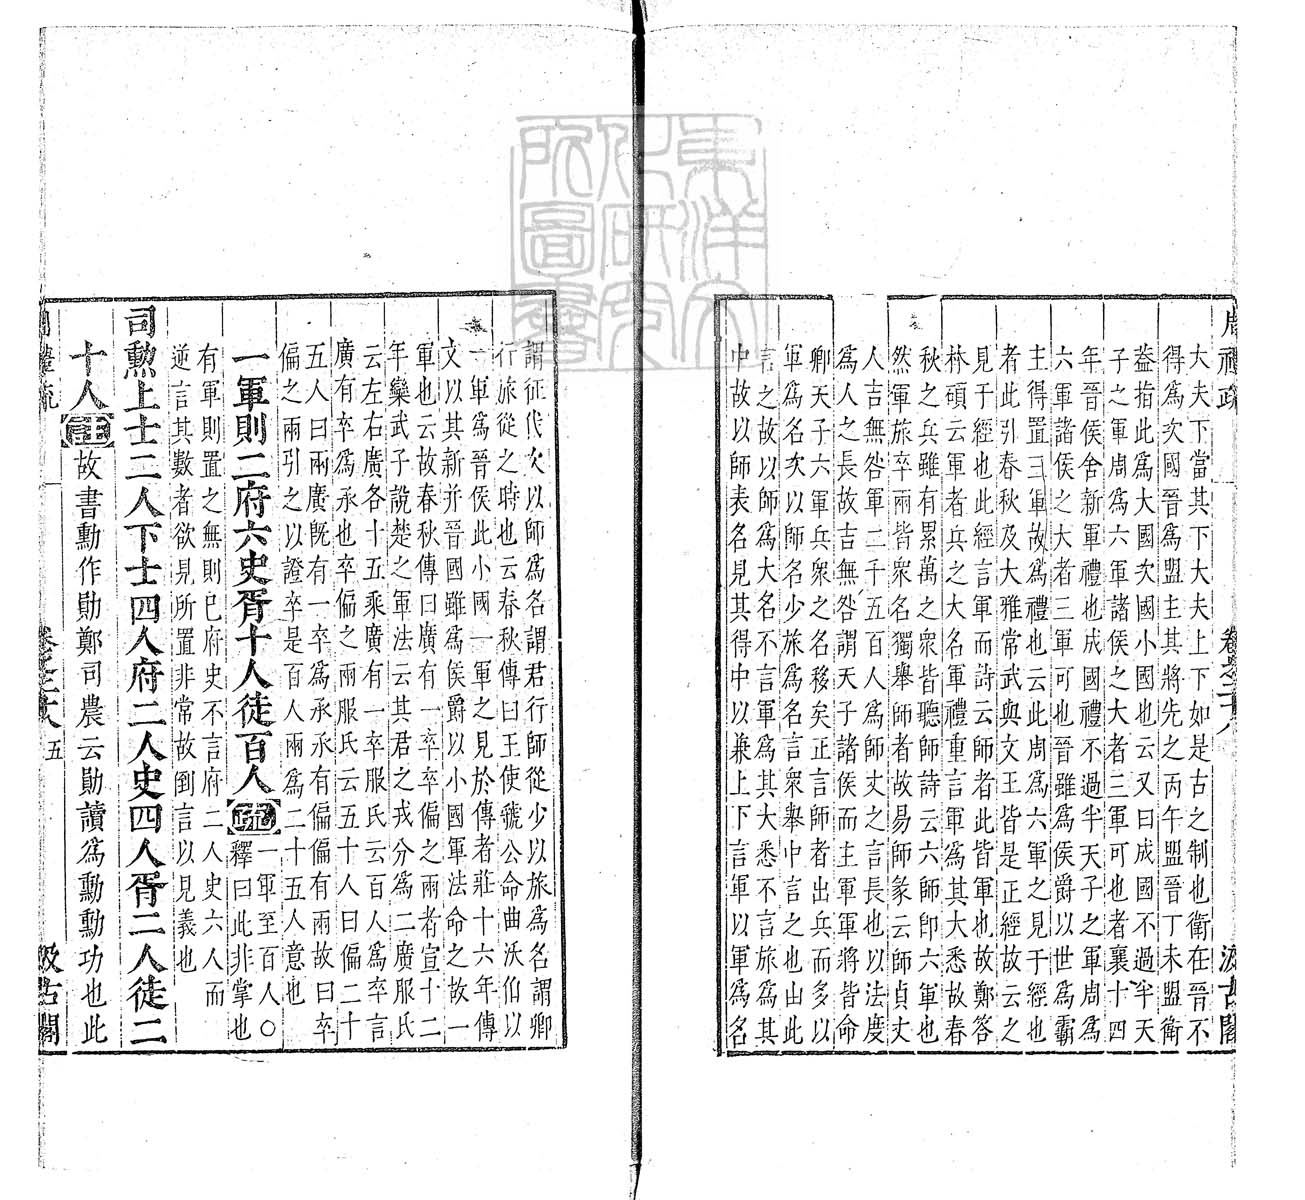 東洋文
化研究
所圖書
周禮疏 卷之二十八 汲古閣
大夫下當其下大夫上下如是古之制也衛在晉不
得爲次國晉爲盟主其將先之丙午盟晉丁未盟衛
益指此爲大國次國小國也云又曰成國不過半天
子之軍周爲六軍諸侯之大者三軍可也者襄十四
年晉侯舍新軍禮也成國禮不過半天子之軍周爲
六軍諸侯之大者三軍可也晉雖爲侯爵以世爲霸
主得置三軍故爲禮也云此周爲六軍之見于經也
者此引春秋及大雅常武與文王皆是正經故云之
見于經也此經言軍而詩云師者此皆軍也故鄭答
林碩云軍者兵之大名軍禮重言軍爲其大悉故春
秋之兵雖有累萬之衆皆聽師詩云六師卽六軍也
然軍旅卒兩皆衆名獨舉師者故易師彖云師貞丈
人吉無咎軍二千五百人爲師丈之言長也以法度
爲人之長故吉無咎謂天子諸侯而主軍軍將皆命
卿天子六軍兵衆之名移矣正言師者出兵而多以
軍爲名次以師名少旅爲名言衆舉中言之也由此
言之故以師爲大名不言軍爲其大悉不言旅爲其
中故以師表名見其得中以兼上下言軍以軍爲名
謂征伐次以師爲名謂君行師從少以旅爲名謂卿
行旅從之時也云春秋傳曰王使虢公命曲沃伯以
一軍爲晉侯此小國一軍之見於傳者莊十六年傳
文以其新并晉國雖爲侯爵以小國軍法命之故一
軍也云故春秋傳曰廣有一卒卒偏之兩者宣十二
年欒武子說楚之軍法云其君之戎分爲二廣服氏
云左右廣各十五乘廣有一卒服氏云百人爲卒言
廣有卒爲承也卒偏之兩服氏云五十人曰偏二十
五人曰兩廣旣有一卒爲承承有偏偏有兩故曰卒
偏之兩引之以證卒是百人兩爲二十五人意也
一軍則二府六史胥十人徒百人疏一軍至百人○
釋曰此非掌也
有軍則置之無則已府史不言府二人史六人而
逆言其數者欲見所置非常故倒言以見義也
司勲上士二人下士四人府二人史四人胥二人徒二
十人註故書勳作勛鄭司農云勛讀爲勳勳功也此
周禮疏 卷之二十八 五 汲古閣